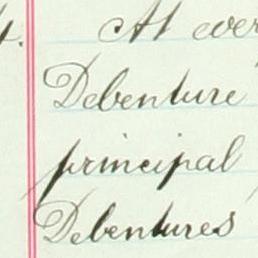 At ever
Debenture
principal
Debentures